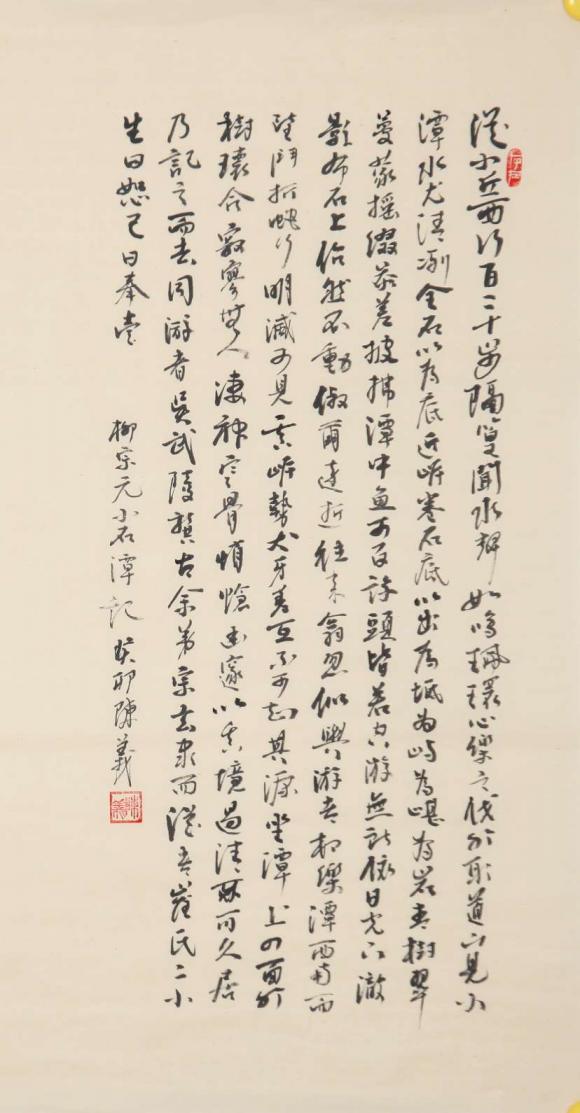 從小丘西行百二十步隔篁聞水聲如鳴珮環心樂之伐竹取道下見小
潭水尤清冽全石以為底近岸卷石底以出為坻為嶼為嵁為岩青樹翠
蔓蒙搖綴參差披拂潭中魚可百許頭皆若空游無所依日光下澈
影布石上佁然不動俶爾遠逝往來翕忽似與游者相樂潭西南而
望鬥折蛇行明滅可見其岸勢犬牙差互不可知其源坐潭上四面竹
樹環合寂寥無人凄神寒骨悄愴幽邃以其境過清不可久居
乃記之而去同游者吳武陵龔古余弟宗玄隸而從者崔氏二小
生曰恕己曰奉壹
柳宗元小石潭記 癸卯陳義